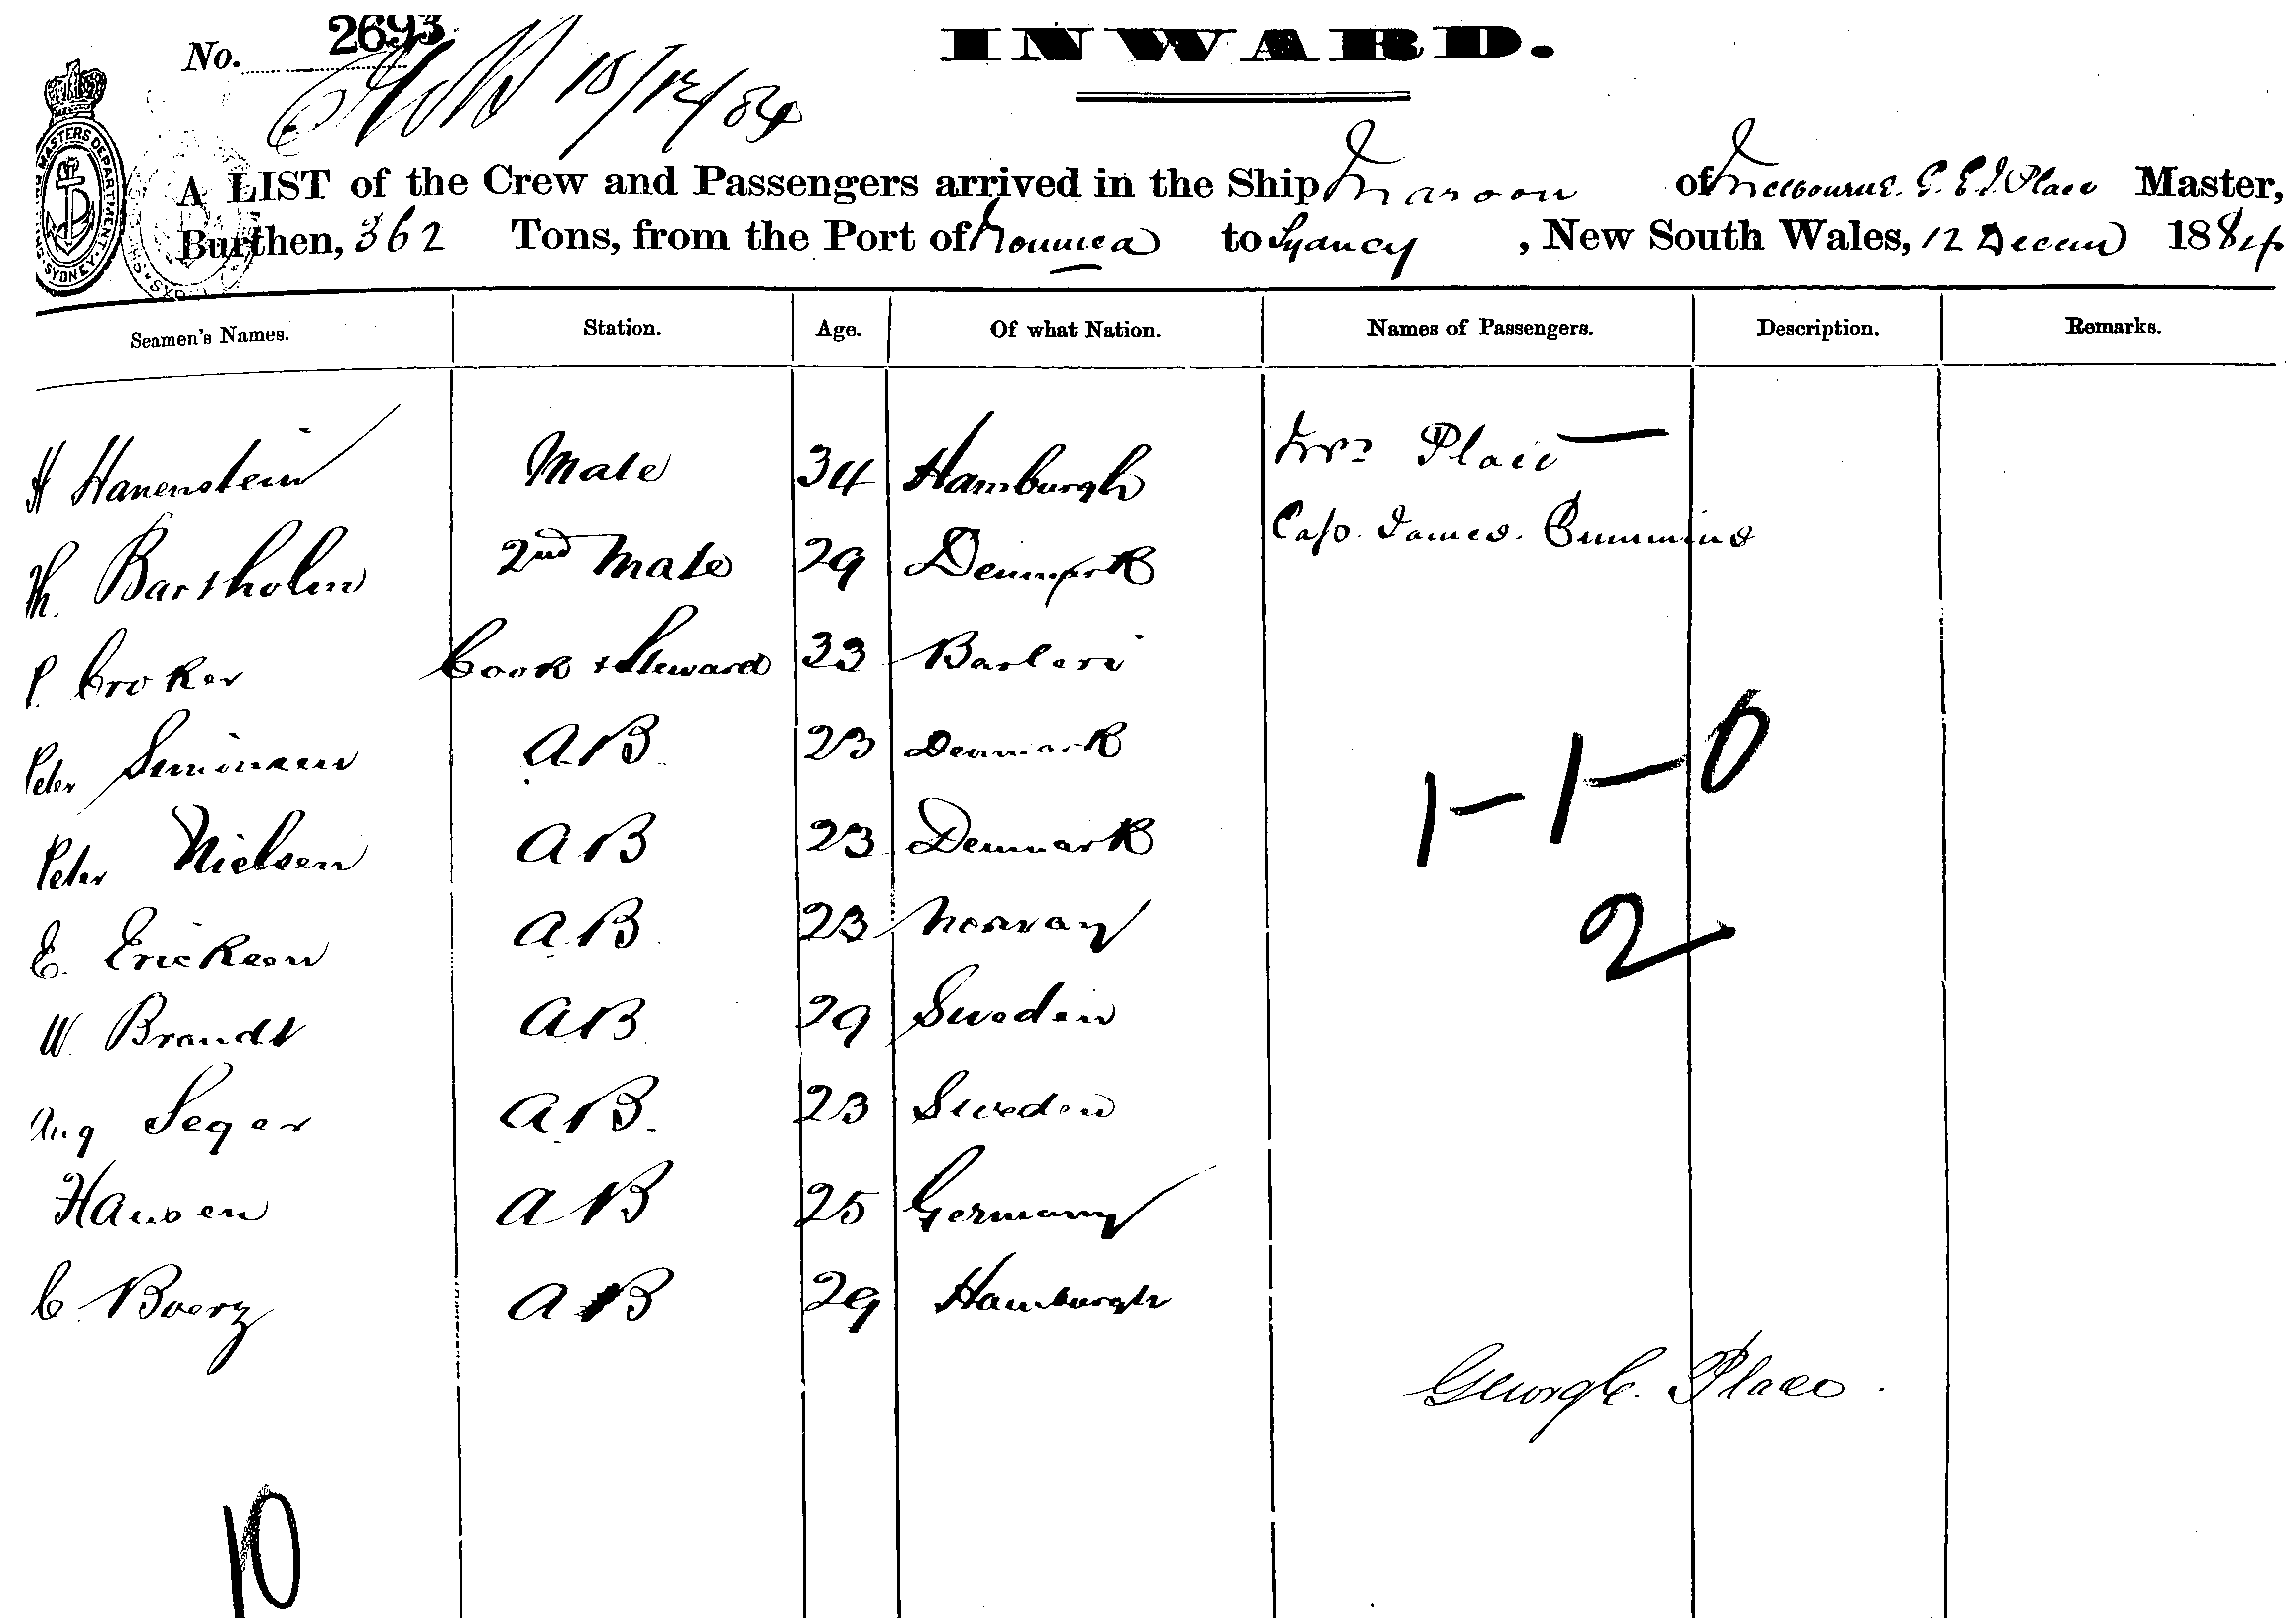 No. 2693
INWARD.
15/12/84
MASTERS DEPARTMENT SYDNEY
A LIST of the Crew and Passengers arrived in the Ship Maroon of Melbourne. G. E. J. Place Master,
Burthen, 362 Tons, from the Port of Noumea to Sydney, New South Wales, 12 Decem 1884
Seamen's Names. Station. Age. Of what Nation. Names of Passengers. Description. Remarks.
H Hanenstein Mate 34 Hamburgh Mrs Place
Th. Bartholm 2nd Mate 29 Denmark Cap. James. Cummins
P. Croker Cook & Steward 33
Peter Simonsen AB 23 Denmark
1-1-0
Peter Nielsen AB 23 Denmark
E. Erickson AB 23 Norway
2
W. Brandt AB 29 Sweden
Aug Seger AB 23 Sweden
Hansen AB 25 Germany
C. Boerg AB 29 Hamburgh
George. Place.
10